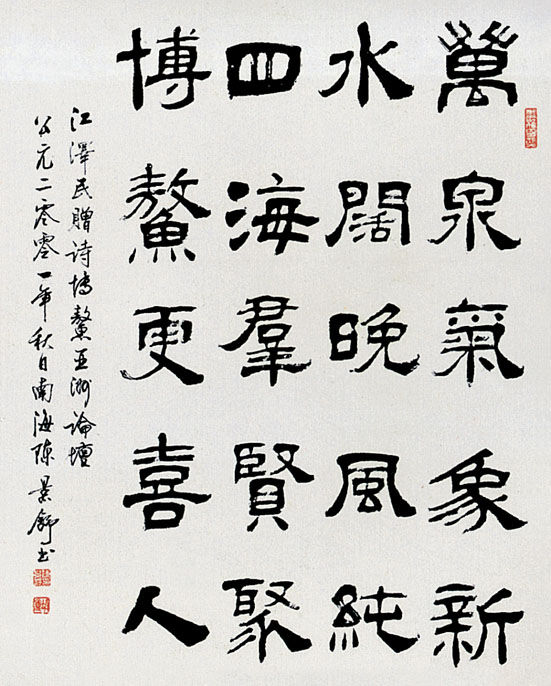 萬泉氣象新
水闊晚風純
四海羣賢聚
博鰲更喜人
江澤民贈诗博鰲亚洲論壇
公元二零零一年秋日南海陳景舒书